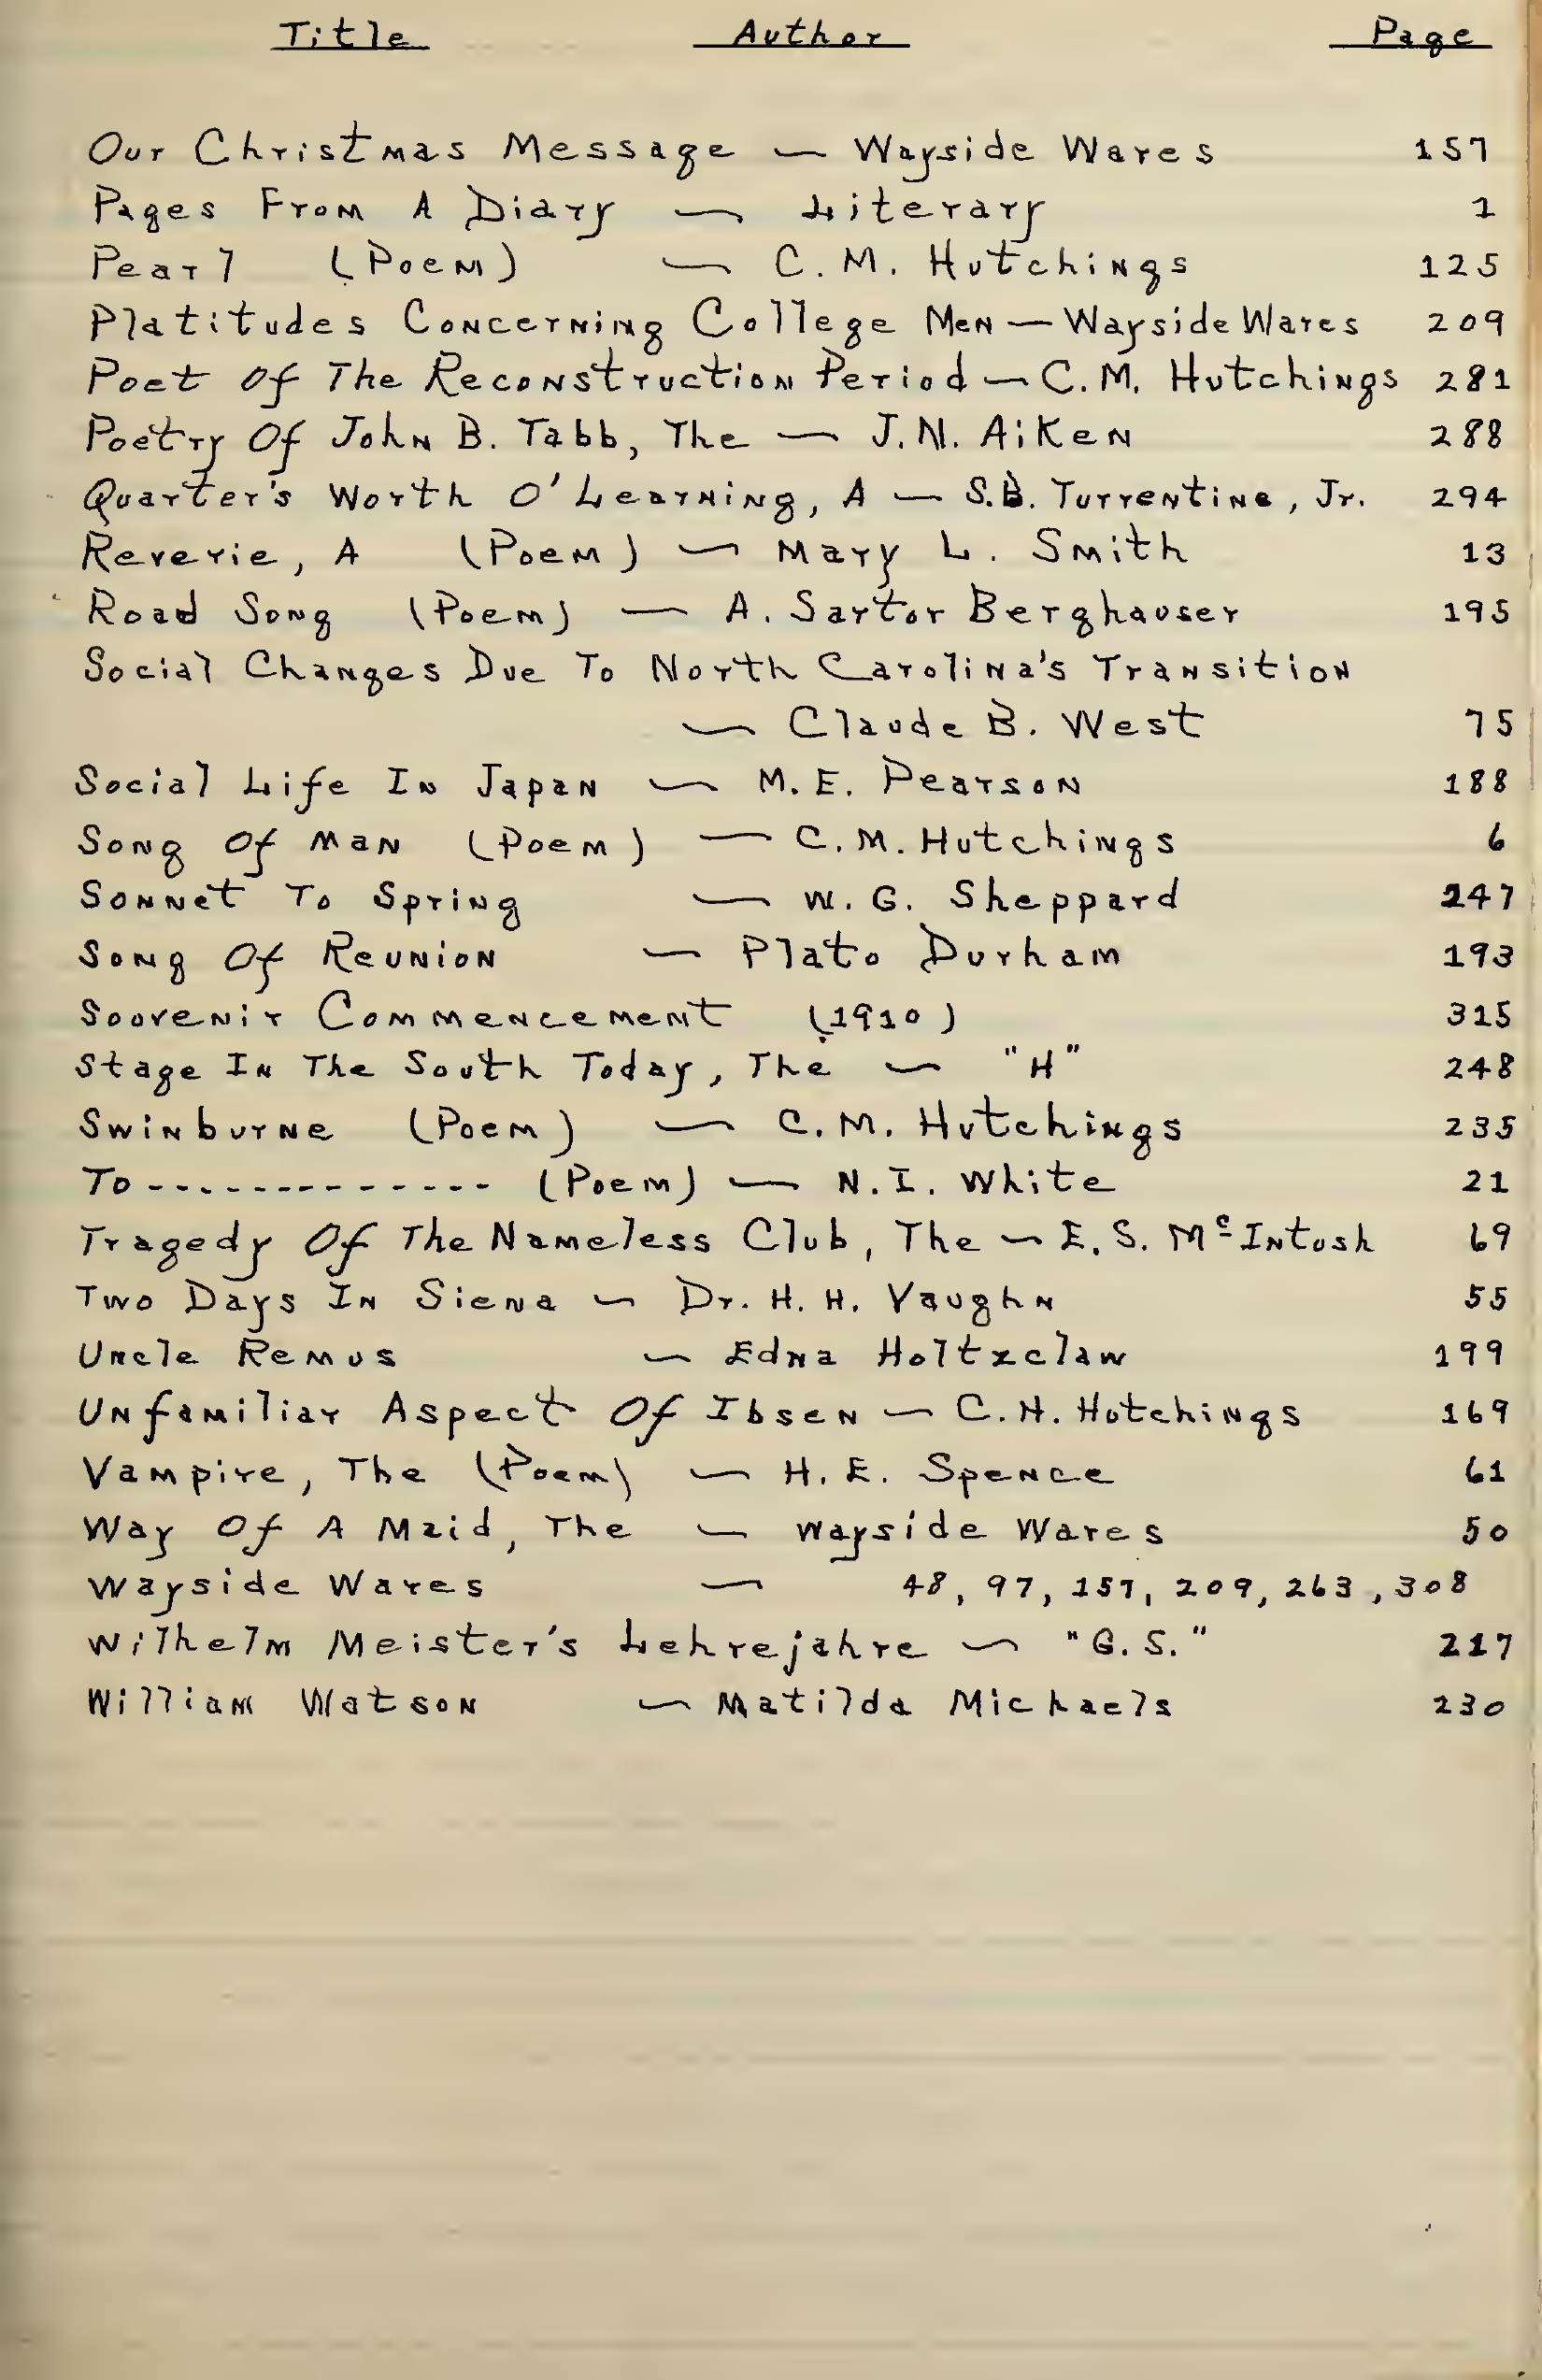 Title Author Page
Our Christmas Message — Wayside Wares 157
Pages From A Diary — Literary 1
Pearl (Poem) — C. M. Hutchings 125
Platitudes Concerning College Men — Wayside Wares 209
Poet Of The Reconstruction Period — C. M. Hutchings 281
Poetry Of John B. Tabb, The — J. N. Aiken 288
Quarter's Worth O' Learning, A — S. B. Turrentine, Jr. 294
Reverie, A (Poem) — Mary L. Smith 13
Road Song (Poem) — A. Sartor Berghauser 195
Social Changes Due To North Carolina's Transition
— Claude B. West 75
Social Life In Japan — M. E. Pearson 188
Song Of Man (Poem) — C. M. Hutchings 6
Sonnet To Spring — W. G. Sheppard 247
Song Of Reunion — Plato Durham 193
Souvenir Commencement (1910) 315
Stage In The South Today, The — "H" 248
Swinburne (Poem) — C. M. Hutchings 235
To -------------- (Poem) — N. I. White 21
Tragedy Of The Nameless Club, The — E. S. McIntosh 69
Two Days In Siena — Dr. H. H. Vaughn 55
Uncle Remus — Edna Holtzclaw 199
Unfamiliar Aspect Of Ibsen — C. H. Hutchings 169
Vampire, The (Poem) — H. E. Spence 61
Way Of A Maid, The — Wayside Wares 50
Wayside Wares — 48, 97, 157, 209, 263, 308
Wilhelm Meister's Lehrejahre — "G. S." 217
William Watson — Matilda Michaels 230